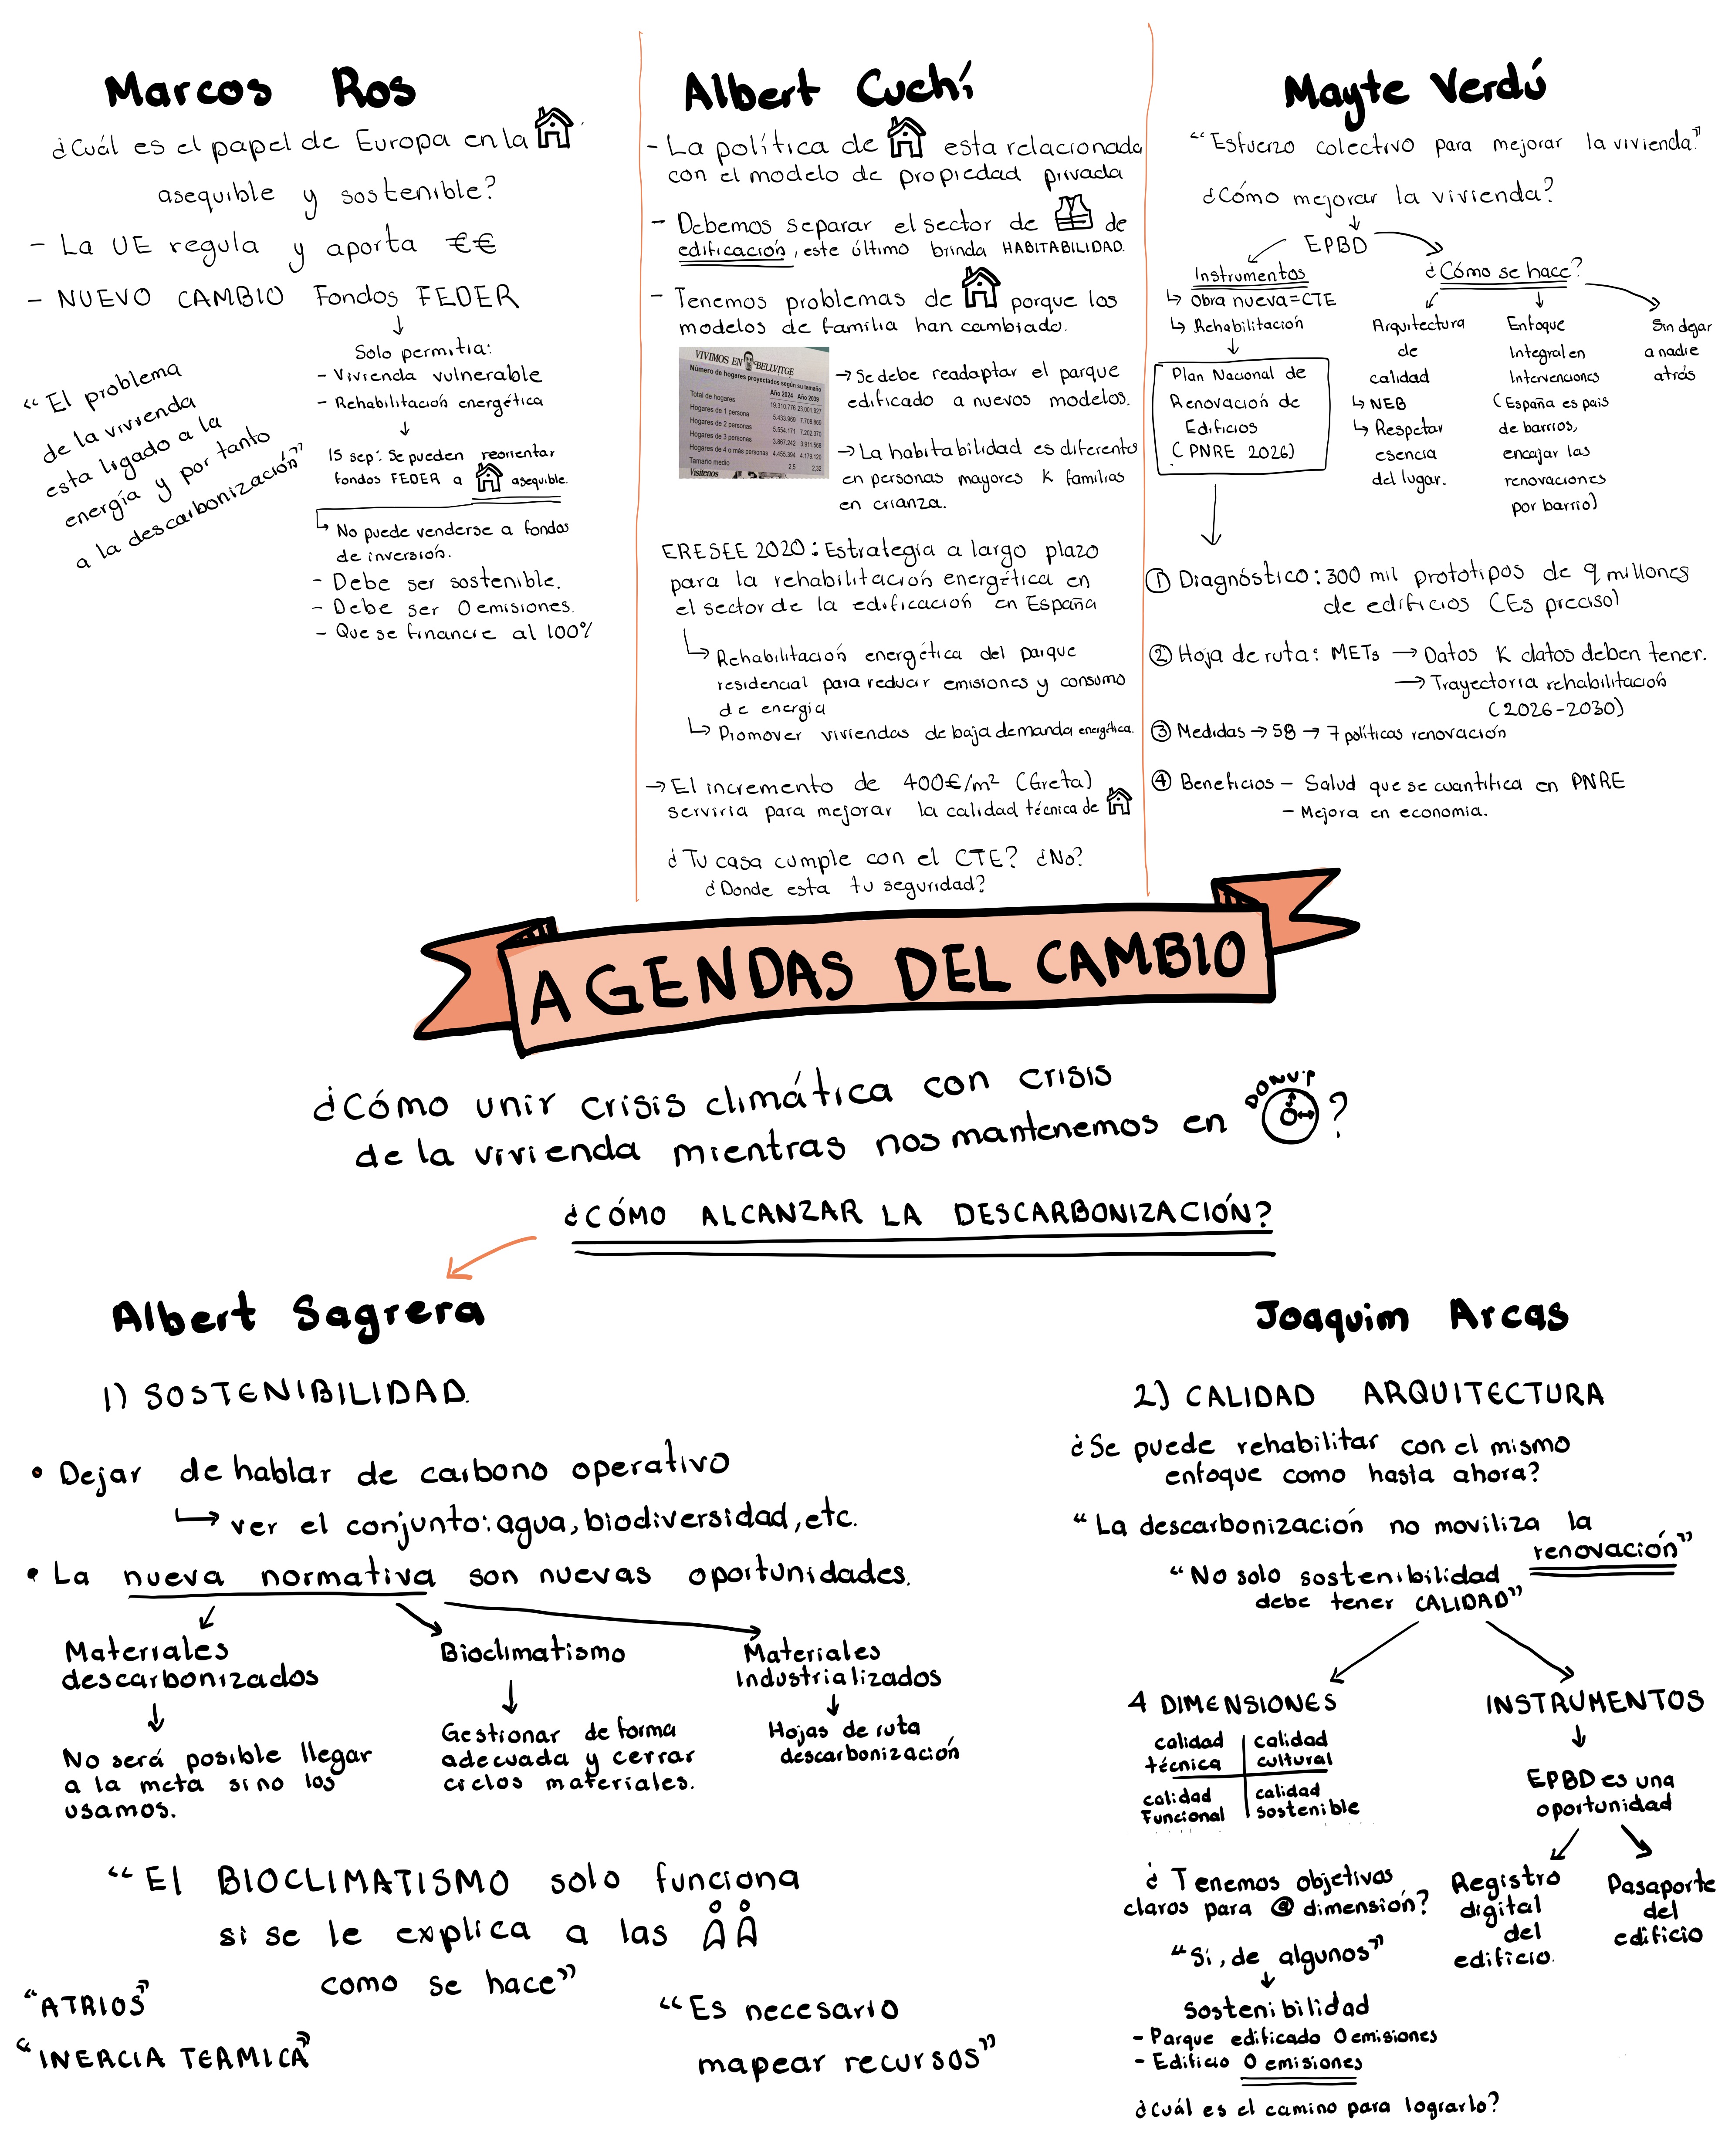 Marcos Ros
¿Cuál es el papel de Europa en la
asequible y sostenible?
- La UE regula y aporta €€
- NUEVO CAMBIO Fondos FEDER
Solo permitia:
- Vivienda vulnerable
- Rehabilitación energética
15 sep: Se pueden reorientar
fondos FEDER a asequible.
No puede venderse a fondos
de inversión.
- Debe ser sostenible.
- Debe ser 0 emisiones.
- Que se financie al 100%
"El problema
de la vivienda
esta ligado a la
energía y por tanto
a la descarbonización"
Albert Cuchí
- La política de esta relacionada
con el modelo de propiedad privada
- Debemos separar el sector de de
edificación, este último brinda HABITABILIDAD.
- Tenemos problemas de porque los
modelos de familia han cambiado.
VIVIMOS EN BELLVITGE
Número de hogares proyectados según su tamaño
Año 2024 Año 2039
Total de hogares 19.310.776 23.001.927
Hogares de 1 persona 5.433.969 7.708.869
Hogares de 2 personas 5.554.171 7.202.370
Hogares de 3 personas 3.867.242 3.911.568
Hogares de 4 o más personas 4.455.394 4.179.120
Tamaño medio 2,5 2,32
Visítenos
→ Se debe readaptar el parque
edificado a nuevos modelos.
→ La habitabilidad es diferente
en personas mayores K familias
en crianza.
ERESEE 2020: Estrategia a largo plazo
para la rehabilitación energética en
el sector de la edificación en España
Rehabilitación energética del parque
residencial para reducir emisiones y consumo
de energia
Promover viviendas de baja demanda energética.
→ El incremento de 400€/m² (Greta)
serviria para mejorar la calidad técnica de
¿Tu casa cumple con el CTE? ¿No?
¿Donde esta tu seguridad?
Mayte Verdú
"Esfuerzo colectivo para mejorar la vivienda"
¿Cómo mejorar la vivienda?
EPBD
Instrumentos
Obra nueva = CTE
Rehabilitación
Plan Nacional de
Renovación de
Edificios
(PNRE 2026)
¿Cómo se hace?
Arquitectura
de
calidad
NEB
Respetar
esencia
del lugar.
Enfoque
Integral en
Intervenciones
(España es pais
de barrios,
encajar las
renovaciones
por barrio)
Sin dejar
a nadie
atrás
① Diagnóstico: 300 mil prototipos de 9 millones
de edificios (Es preciso)
② Hoja de ruta: METs → Datos K datos deben tener.
→ Trayectoria rehabilitación
(2026-2030)
③ Medidas → 58 → 7 políticas renovación
④ Beneficios - Salud que se cuantifica en PNRE
- Mejora en economia.
AGENDAS DEL CAMBIO
¿Cómo unir crisis climática con crisis
de la vivienda mientras nos mantenemos en DONUT?
¿CÓMO ALCANZAR LA DESCARBONIZACIÓN?
Albert Sagrera
1) SOSTENIBILIDAD.
• Dejar de hablar de carbono operativo
ver el conjunto: agua, biodiversidad, etc.
• La nueva normativa son nuevas oportunidades.
Materiales
descarbonizados
No será posible llegar
a la meta si no los
usamos.
Bioclimatismo
Gestionar de forma
adecuada y cerrar
ciclos materiales.
Materiales
Industrializados
Hojas de ruta
descarbonización
"El BIOCLIMATISMO solo funciona
si se le explica a las
como se hace"
"ATRIOS"
"INERCIA TERMICA"
"Es necesario
mapear recursos"
Joaquim Arcas
2) CALIDAD ARQUITECTURA
¿Se puede rehabilitar con el mismo
enfoque como hasta ahora?
"La descarbonización no moviliza la
renovación"
"No solo sostenibilidad
debe tener CALIDAD"
4 DIMENSIONES
calidad técnica
calidad cultural
calidad Funcional
calidad sostenible
¿Tenemos objetivos
claros para @ dimensión?
"Si, de algunos"
Sostenibilidad
- Parque edificado 0 emisiones
- Edificio 0 emisiones
¿Cuál es el camino para lograrlo?
INSTRUMENTOS
EPBD es una
oportunidad
Registro
digital
del
edificio.
Pasaporte
del
edificio